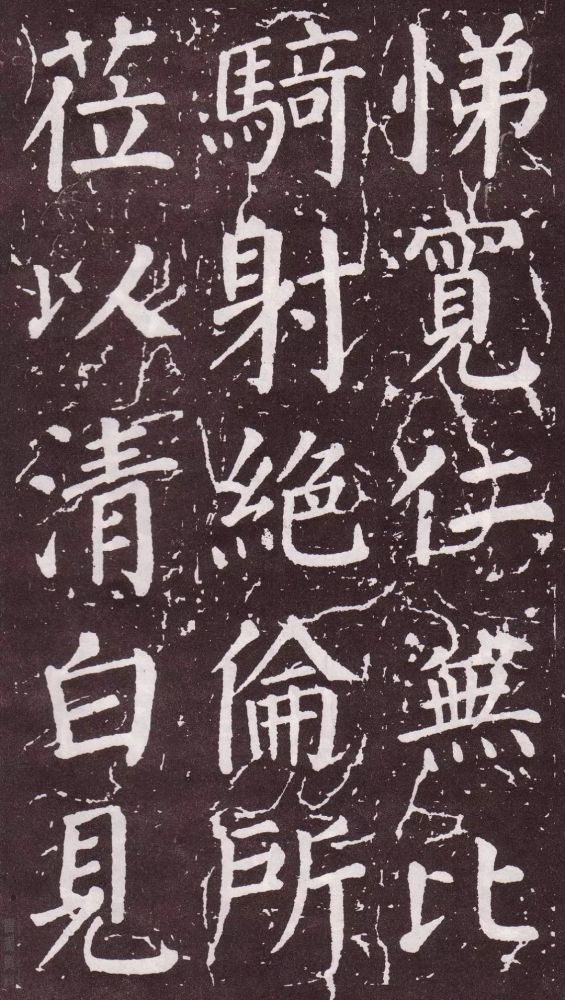 悌寬仁無比
騎射絕倫所
莅以清白見